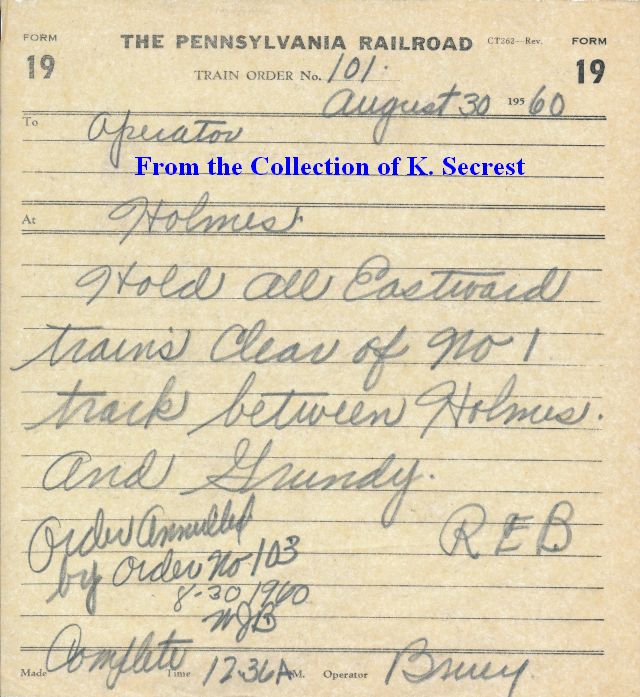 FORM 19 THE PENNSYLVANIA RAILROAD CT262—Rev. FORM 19
TRAIN ORDER No. 101.
August 30 195 60
To Operator
From the Collection of K. Secrest
At Holmes
Hold all Eastward
trains clear of No 1
track between Holmes.
and Grundy.
R E B
Order Annulled
by Order No 103
8-30 1960
WJB
Made Complete Time 12.36 A M. Operator